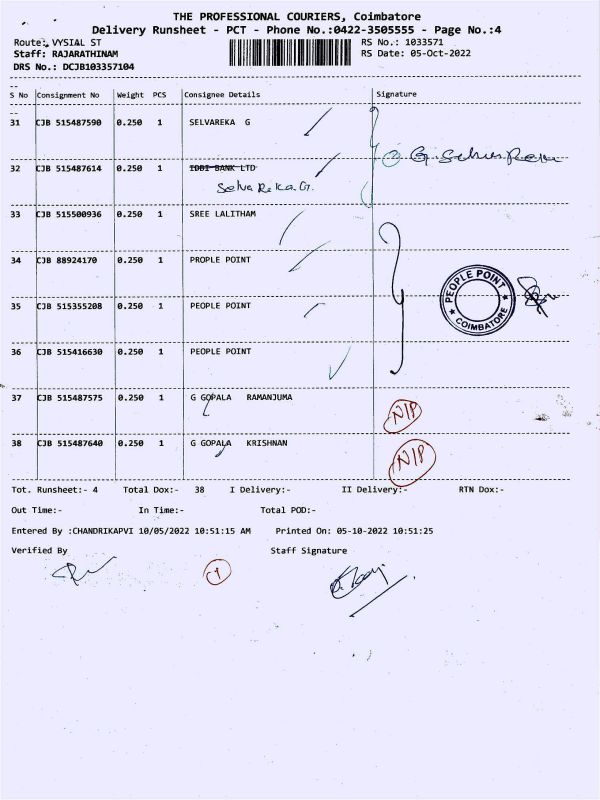 THE PROFESSIONAL COURIERS, Coimbatore
Delivery Runsheet - PCT - Phone No.:0422-3505555 - Page No.:4
Route: VYSIAL ST RS No.: 1033571
Staff: RAJARATHINAM RS Date: 05-Oct-2022
DRS No.: DCJB103357104
S No Consignment No Weight PCS Consignee Details Signature
31 CJB 515487590 0.250 1 SELVAREKA G
32 CJB 515487614 0.250 1 IDBI BANK LTD
Selva Reka.G.
33 CJB 515500936 0.250 1 SREE LALITHAM
34 CJB 88924170 0.250 1 PROPLE POINT
PEOPLE POINT
COIMBATORE
35 CJB 515355208 0.250 1 PEOPLE POINT
36 CJB 515416630 0.250 1 PEOPLE POINT
37 CJB 515487575 0.250 1 G GOPALA RAMANJUMA N/P
38 CJB 515487640 0.250 1 G GOPALA KRISHNAN N/P
Tot. Runsheet:- 4 Total Dox:- 38 I Delivery:- II Delivery:- RTN Dox:-
Out Time:- In Time:- Total POD:-
Entered By :CHANDRIKAPVI 10/05/2022 10:51:15 AM Printed On: 05-10-2022 10:51:25
Verified By Staff Signature